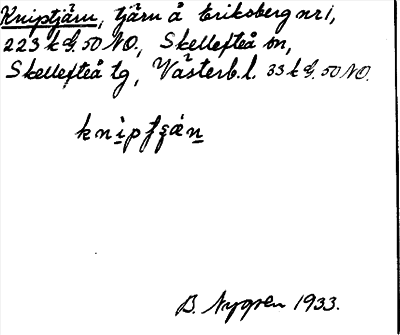 Kniptjärn, tjärn å Eriksberg nr 1,
223 k d. 50 NO., Skellefteå sn,
Skellefteå tg, Västerb. l. 33 k d. 50 NO.
B. Nygren 1933.